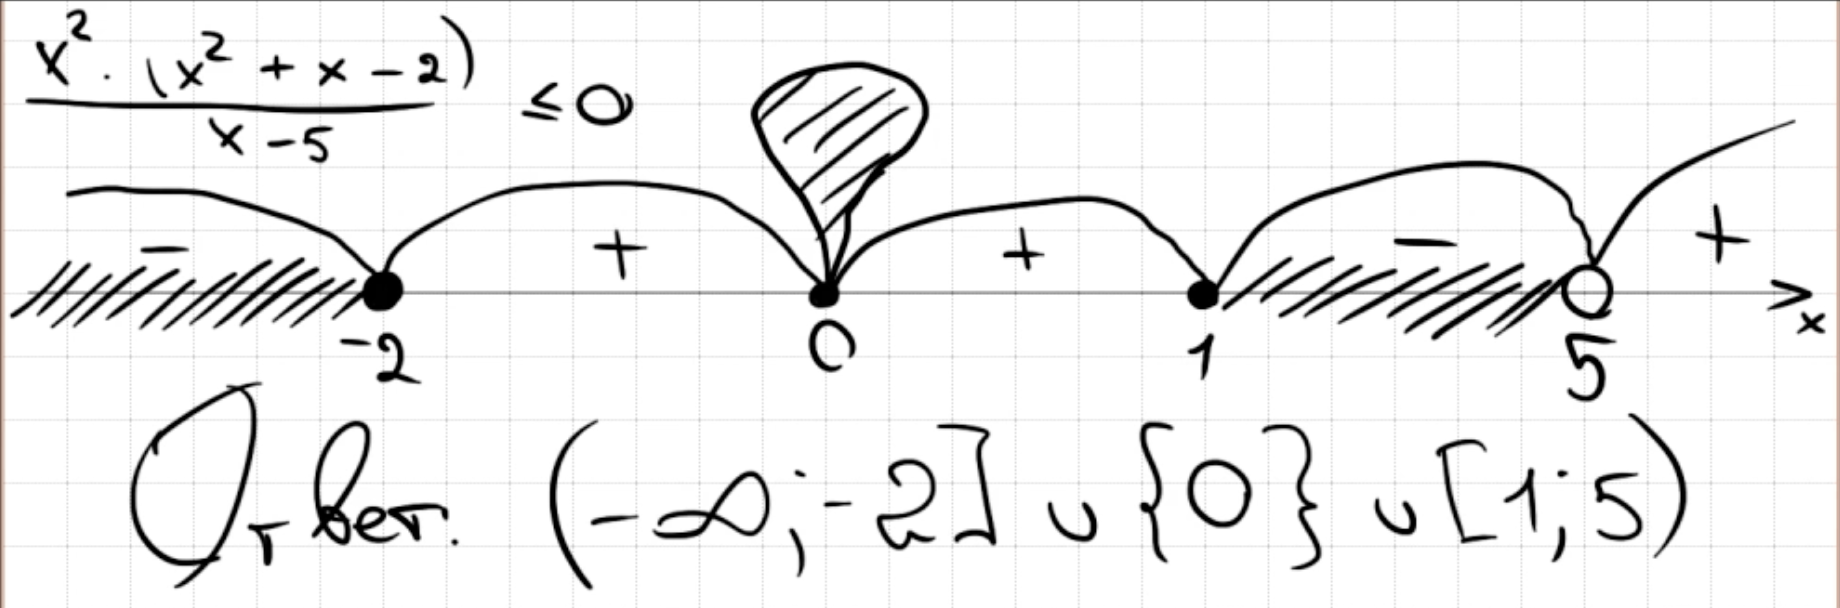 x² · (x² + x - 2) / x - 5 ≤ 0
- + + - +
-2 0 1 5 x
Ответ. (-∞; -2] ∪ {0} ∪ [1; 5)